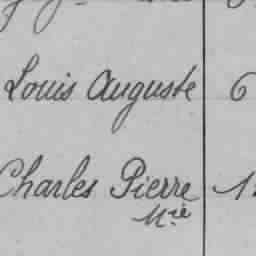 Louis Auguste 6
Charles Pierre
Mie